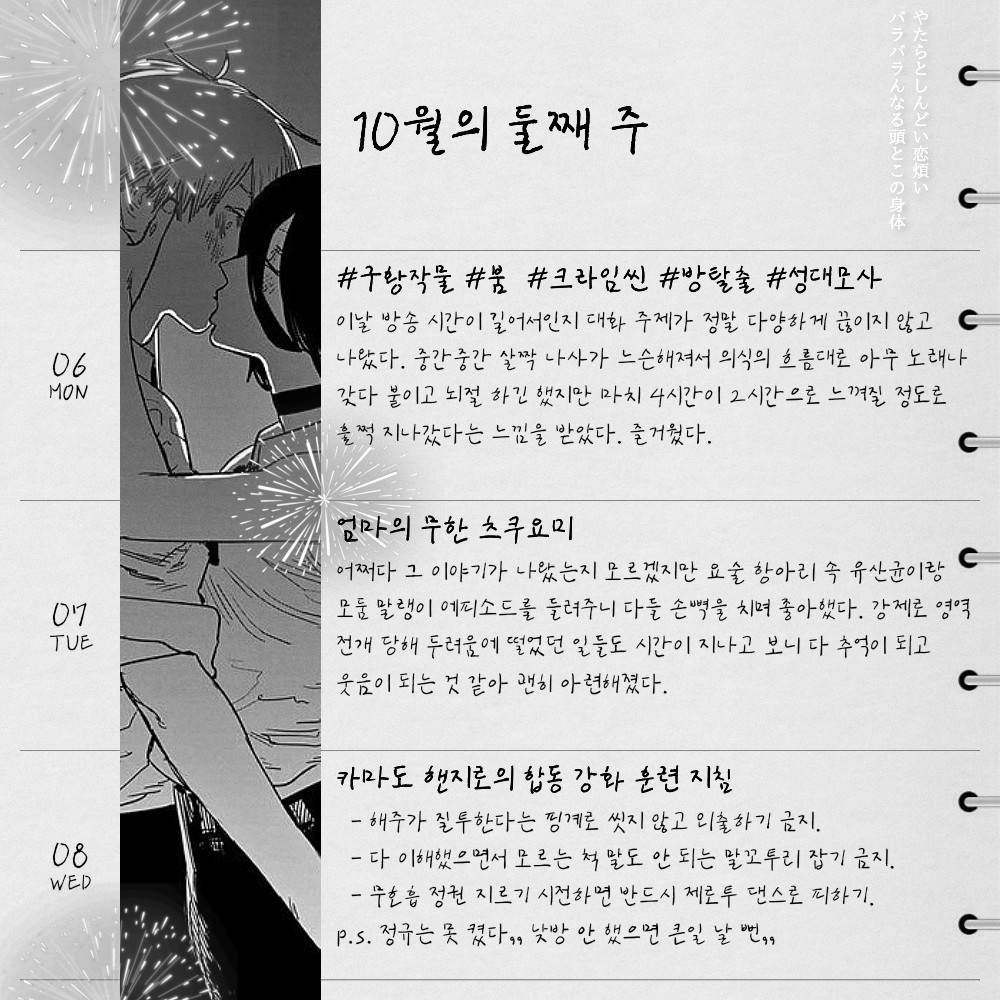 やたらとしんどい恋煩い
バラバラんなる頭とこの身体
10월의 둘째 주
06
MON
#구황작물 #붐 #크라임씬 #방탈출 #성대모사
이날 방송 시간이 길어서인지 대화 주제가 정말 다양하게 끊이지 않고
나왔다. 중간중간 살짝 나사가 느슨해져서 의식의 흐름대로 아무 노래나
갖다 붙이고 뇌절 하긴 했지만 마치 4시간이 2시간으로 느껴질 정도로
훌쩍 지나갔다는 느낌을 받았다. 즐거웠다.
07
TUE
엄마의 무한 츠쿠요미
어쩌다 그 이야기가 나왔는지 모르겠지만 요술 항아리 속 유산균이랑
모둠 말랭이 에피소드를 들려주니 다들 손뼉을 치며 좋아했다. 강제로 영역
전개 당해 두려움에 떨었던 일들도 시간이 지나고 보니 다 추억이 되고
웃음이 되는 것 같아 괜히 아련해졌다.
08
WED
카마도 핸지로의 합동 강화 훈련 지침
- 해주가 질투한다는 핑계로 씻지 않고 외출하기 금지.
- 다 이해했으면서 모르는 척 말도 안 되는 말꼬투리 잡기 금지.
- 무호흡 정권 지르기 시전하면 반드시 제로투 댄스로 피하기.
p.s. 정규는 못 켰다,, 낮방 안 했으면 큰일 날 뻔,,